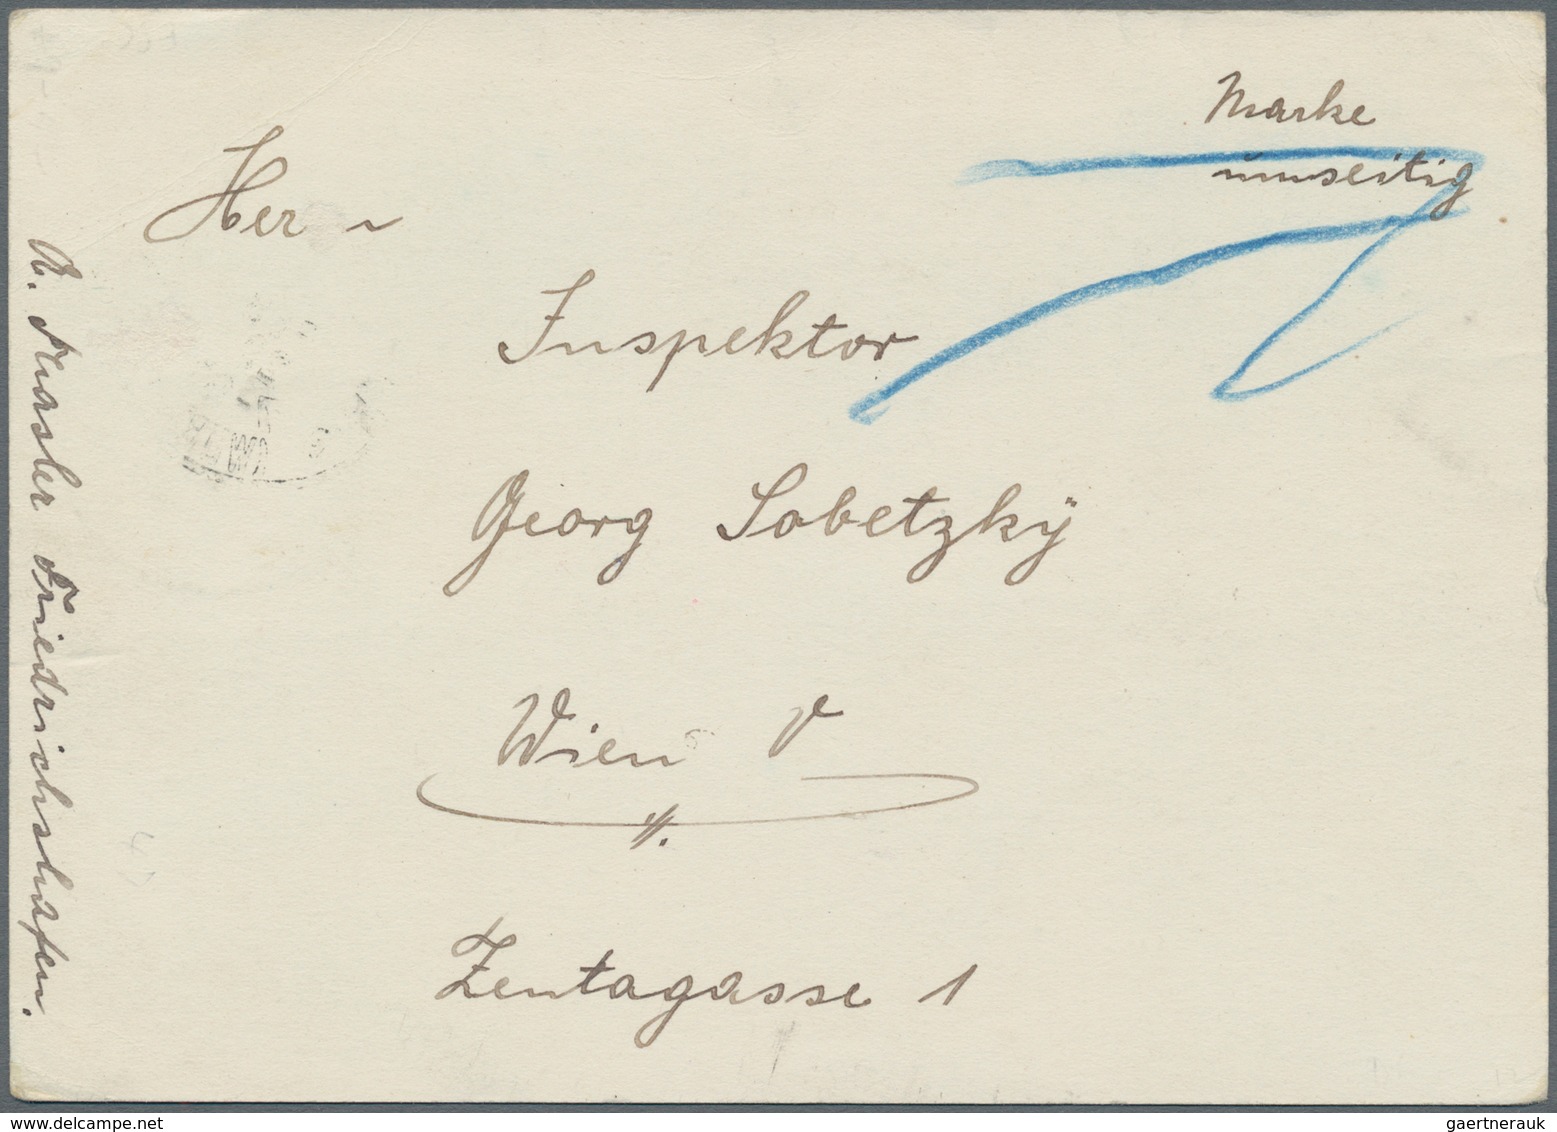 Marke
umseitig
Herrn
Inspektor
Georg Sobetzkÿ
Wien V
Zentagasse 1
Friedrichshafen.
gaertnerauk